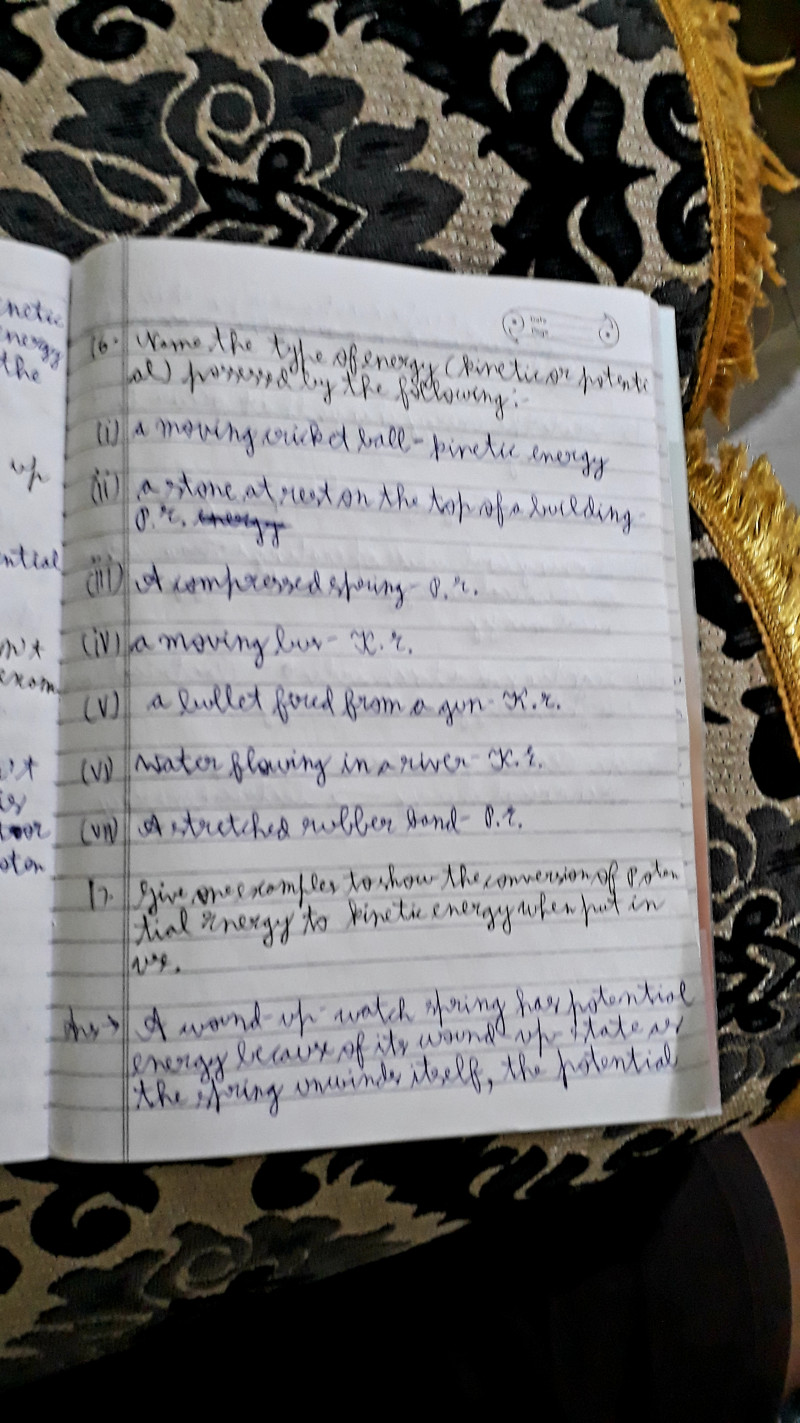 enetic
energy
the
up
ential
n't
exam
n't
is
oten
Date
Page
16. Name the type of energy (kinetic or potenti
al) possessed by the following:-
(i) a moving cricket ball - kinetic energy
(ii) a stone at rest on the top of a building -
P.E. energy
(iii) A compressed spring - P.E.
(iv) a moving bus - K.E.
(v) a bullet fired from a gun - K.E.
(vi) Water flowing in a river - K.E.
(vii) A stretched rubber band - P.E.
17. Give one examples to show the conversion of Poten
tial Energy to kinetic energy when put in
use.
Ans→ A wound-up watch spring has potential
energy because of its wound-up state as
the spring unwinds itself, the potential